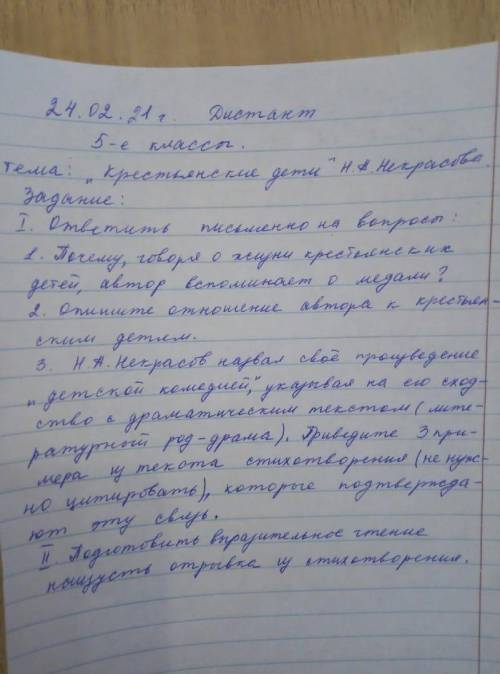 24.02.21г. Дистант
5-е классы.
Тема: „Крестьянские дети" Н.А.Некрасова.
Задание:
I. Ответить письменно на вопросы:
1. Почему, говоря о жизни крестьянских
детей, автор вспоминает о медали?
2. Опишите отношение автора к крестьян-
ским детям.
3. Н.А.Некрасов назвал своё произведение
„детской комедией", указывая на его сход-
ство с драматическим текстом (лите-
ратурный род-драма). Приведите 3 при-
мера из текста стихотворения (не нуж-
но цитировать), которые подтвержда-
ют эту связь.
II. Подготовить выразительное чтение
наизусть отрывка из стихотворения.